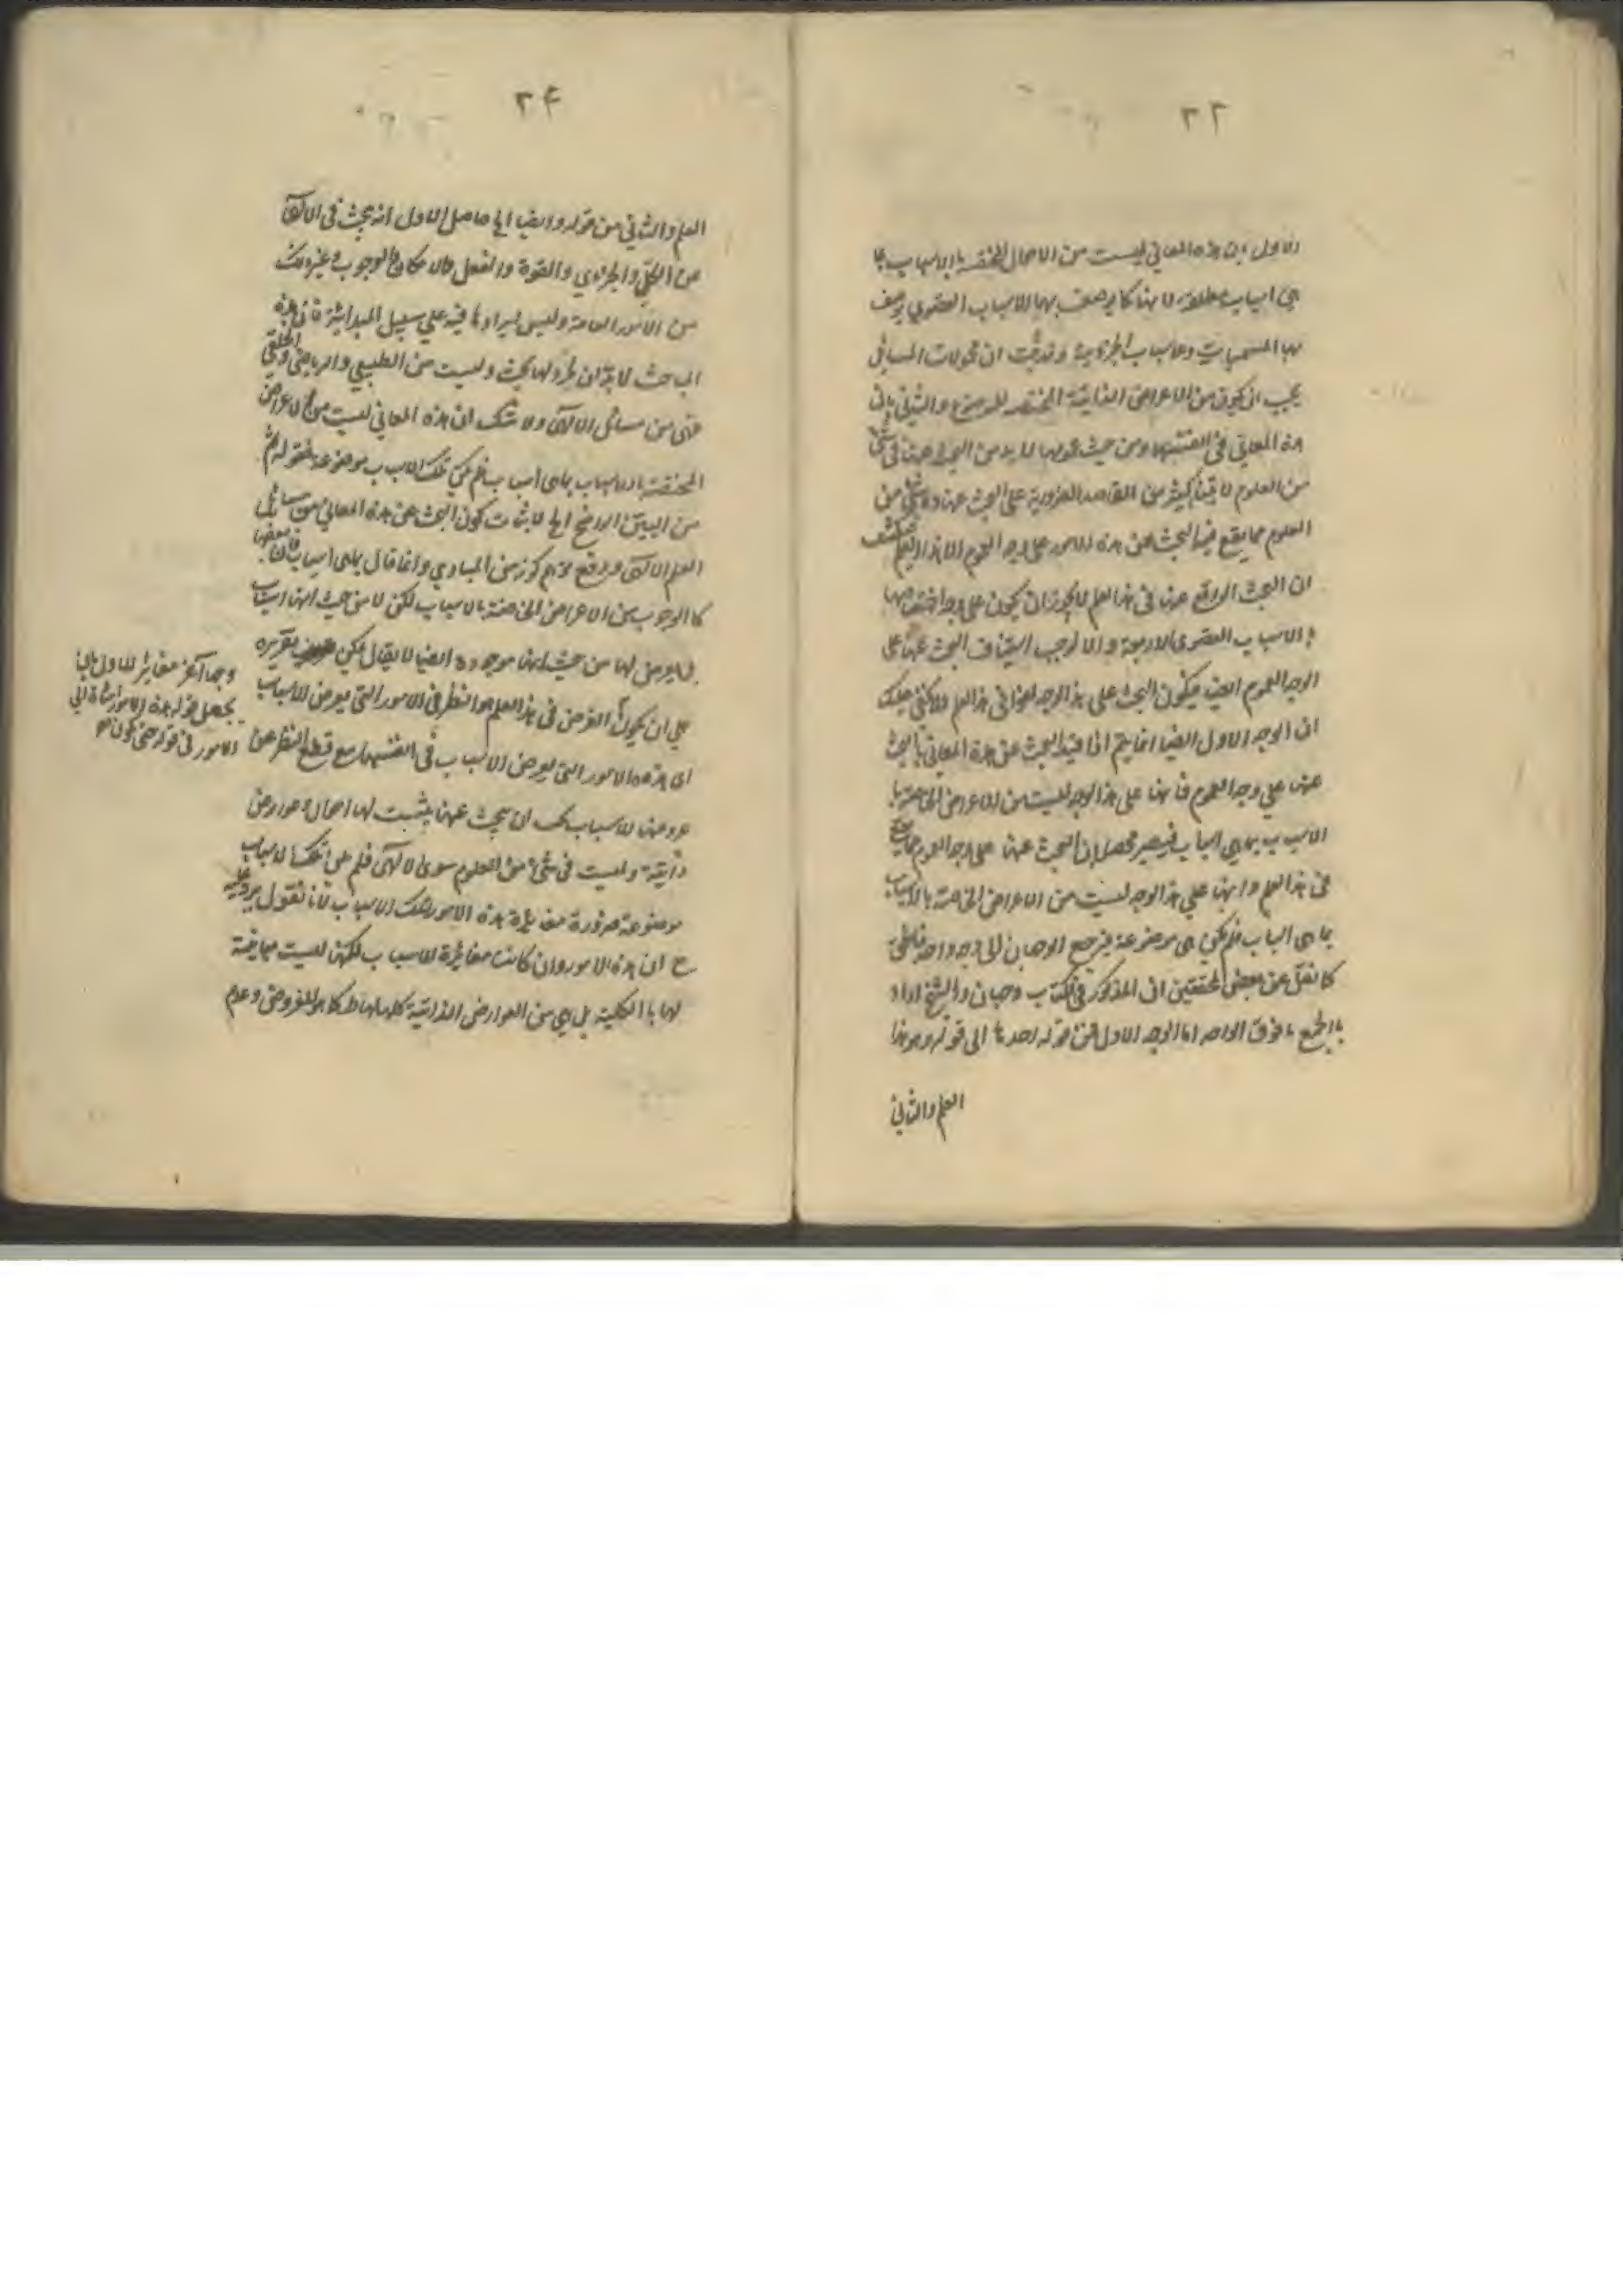 ٢٣
الاول ان هذه المعاني ليست من الاحوال المختصة بالاسباب بما
هي اسباب مطلقة لانها كما يوصف بها الاسباب القصوى يوصف
بها المسببات والاسباب الجزئية وقد ثبت ان محمولات المسائل
يجب ان يكون من الاعراض الذاتية المختصة للموضوع والثاني بان
هذه المعاني في انفسها ومن حيث عمومها لابد من البحث عنها في شي
من العلوم لا بتناء كثير من المقاصد الضرورية على البحث عنها وليس شي من
العلوم مما يقع فيه البحث عن هذه الامور على وجه العموم الا هذا العلم
ان البحث الواقع عنها في هذا العلم لا يجوز ان يكون على وجه اختصاصها
بالاسباب القصوى الاربعة والا لوجب استيناف البحث عنها على
الوجه العموم ايضا فيكون البحث على هذا الوجه لغوا في هذا العلم ولا يخفى عليك
ان الوجه الاول ايضا انما يتم اذا قيد البحث عن هذه المعاني بالبحث
عنها على وجه العموم فانها على هذا الوجه ليست من الاعراض الخاصة با
الاسباب بما هي اسباب فيصير محصله ان البحث عنها على وجه العموم مما يقع
في هذا العلم وانها على هذا الوجه ليست من الاعراض الخاصة بالاسباب
بما هي اسباب فلم يكن هي موضوعة فيرجع الوجهان الى وجه واحد
كما نقل عن بعض المحققين ان المذكور في الكتاب وجهان والشيخ اراد
بالجمع ما فوق الواحد اما الوجه الاول فمن قوله احدها الى قوله وهو هذا
العلم والثاني
٢۴
العلم والثاني من قوله وايضا الخ حاصل الاول انه يبحث في الالهي
عن الكلي والجزئي والقوة والفعل والامكان والوجوب وغير ذلك
من الامور العامة وليس ايرادها فيه على سبيل المبدائية فان هذه
المباحث لابد ان يقع لها بحث وليست من الطبيعي والرياضي والخلقي
فهي من مسائل الالهي ولا شك ان هذه المعاني ليست من الاعراض
المختصة بالاسباب بما هي اسباب فلم يكن تلك الاسباب موضوعة فقوله ثم
من البين الواضح الخ لاثبات كون البحث عن هذه المعاني من مسائل
العلم الالهي ودفع توهم كونه من المبادي وانما قال بما هي اسباب فان بعضها
كالوجوب من الاعراض الخاصة بالاسباب لكن لا من حيث انها اسباب
بل يعرض لها من حيث انها موجودة ايضا لا يقال يمكن تقريره
على ان يكون الغرض في هذا العلم هو النظر في الامور التي يعرض للاسباب
اي هذه الامور التي يعرض الاسباب في انفسها مع قطع النظر عن
عروضها للاسباب يجب ان يبحث عنها يثبت لها احوال وعوارض
ذاتية وليست في شيء من العلوم سوى الالهي فلم يكن تلك الاسباب
موضوعة ضرورة مغايرة هذه الامور تلك الاسباب لانا نقول يرد عليه
ح ان هذه الامور وان كانت مغايرة للاسباب لكنها ليست مباينة
لها بالكلية بل هي من العوارض الذاتية كلها لها كما هو المفروض وعدم
وجها آخر مغاير للاول بان
يجعل قوله هذه الامور اشارة الى
الامور في قوله حتى يكون